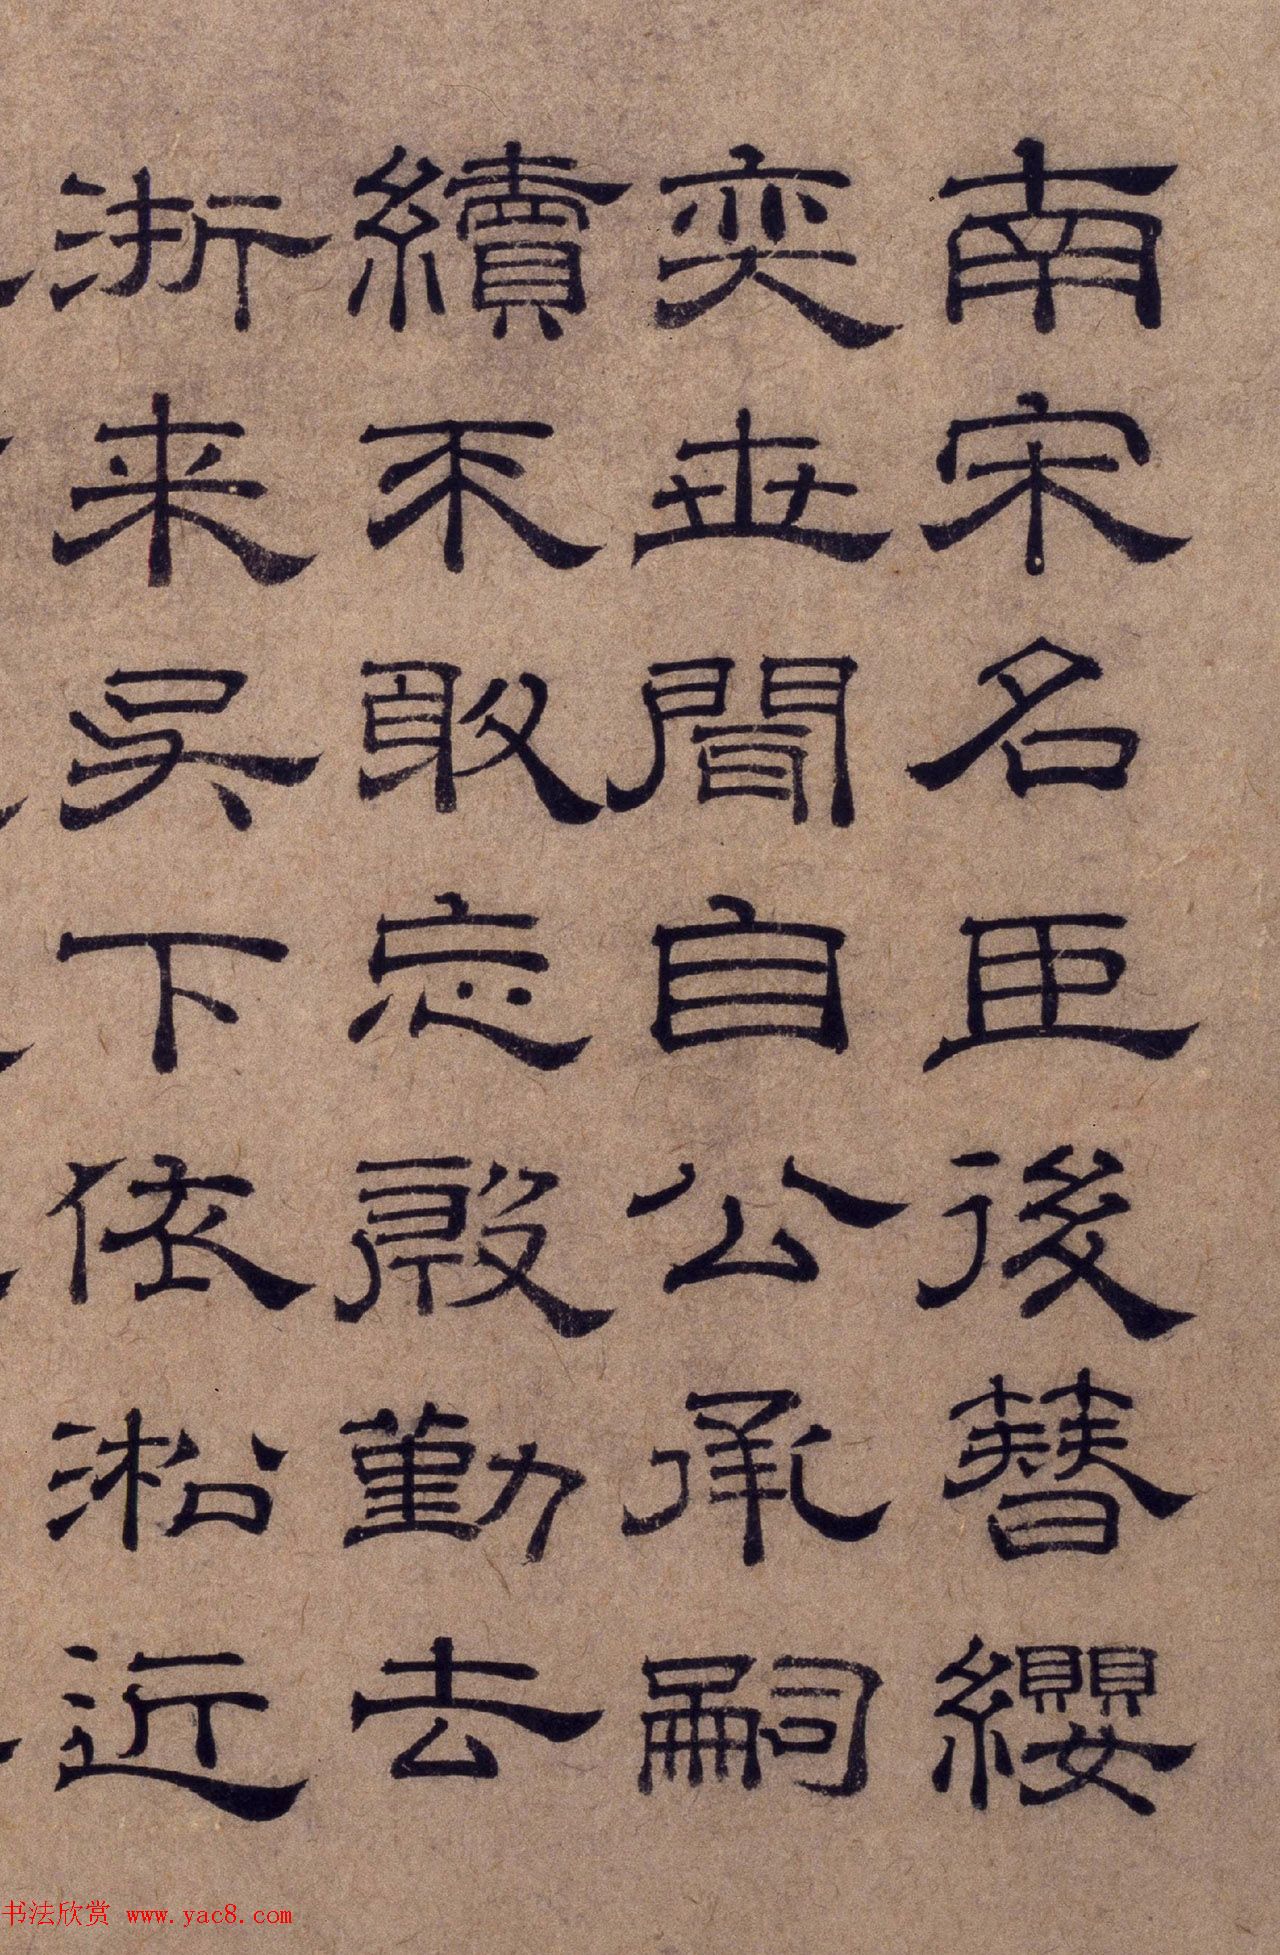 南宋名臣後簪纓
奕世聞自公承嗣
續不敢忘殷勤去
浙来吴下依淞近
书法欣赏 www.yac8.com